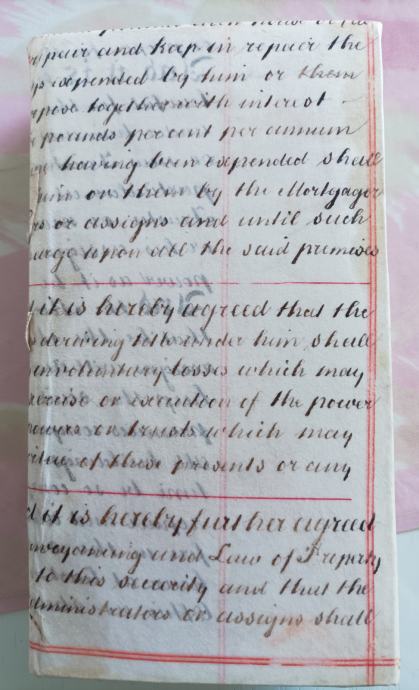 repair and keep in repair the
expended by him or them
together with interest
pounds per cent per annum
having been expended shall
him or them by the Mortgagor
or assigns and until such
upon all the said premises
it is hereby agreed that the
deriving title under him shall
involuntary losses which may
exercise or execution of the power
powers or trusts which may
virtue of these presents or any
it is hereby further agreed
Conveyancing and Law of Property
to this security and that the
administrators or assigns shall